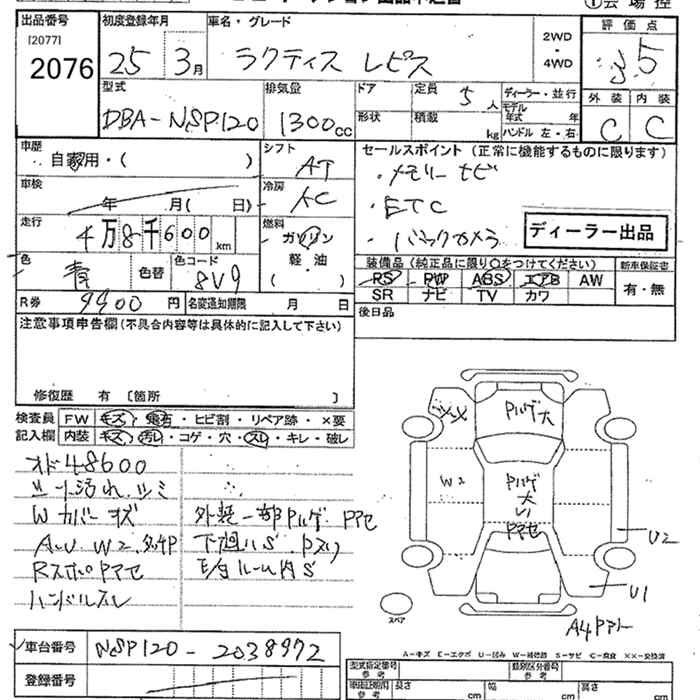 出品番号 初度登録年月 車名・グレード 2WD・4WD 評価点
[2077]
2076 25年 3月 ラクティス レピス 3.5
型式 排気量 ドア 定員 5人 ディーラー・並行 外装 内装
DBA-NSP120 1300cc 形状 積載 kg モデル年式 年 C C
ハンドル 左・右
車歴 シフト セールスポイント (正常に機能するものに限ります)
自家用・( ) AT ・メモリーナビ
車検 年 月( 日) 冷房 AC ・ETC
走行 4万8千600km 燃料 ガソリン ・バックカメラ ディーラー出品
軽・油
( )
色 青 色替 色コード 8V9 装備品 (純正品に限り○をつけてください) 新車保証書
RS PW ABS エアB AW 有・無
SR ナビ TV カワ
R券 9900円 名変通知期限 月 日
後日品
注意事項申告欄(不具合内容等は具体的に記入して下さい)
修復歴 有 〔箇所 〕
検査員 FW キズ・飛石・ヒビ割・リペア跡・×要
記入欄 内装 キズ・汚レ・コゲ・穴・スレ・キレ・破レ
オド48600
シート汚れ シミ
Wカバーキズ 外装一部Pハゲ Pアセ
A.U W2 下廻りS
RスポPアセ ルーム内S
ハンドルスレ
Pハゲ大
W2
Pハゲ大
Pアセ
U2
U1
スペア
A-キズ E-エクボ U-凹み W-補修跡 S-サビ C-腐食 ××-交換済
車台番号 NSP120-2038972
登録番号
型式指定番号 参考 類別区分番号 参考
長さ cm 幅 cm 高さ cm